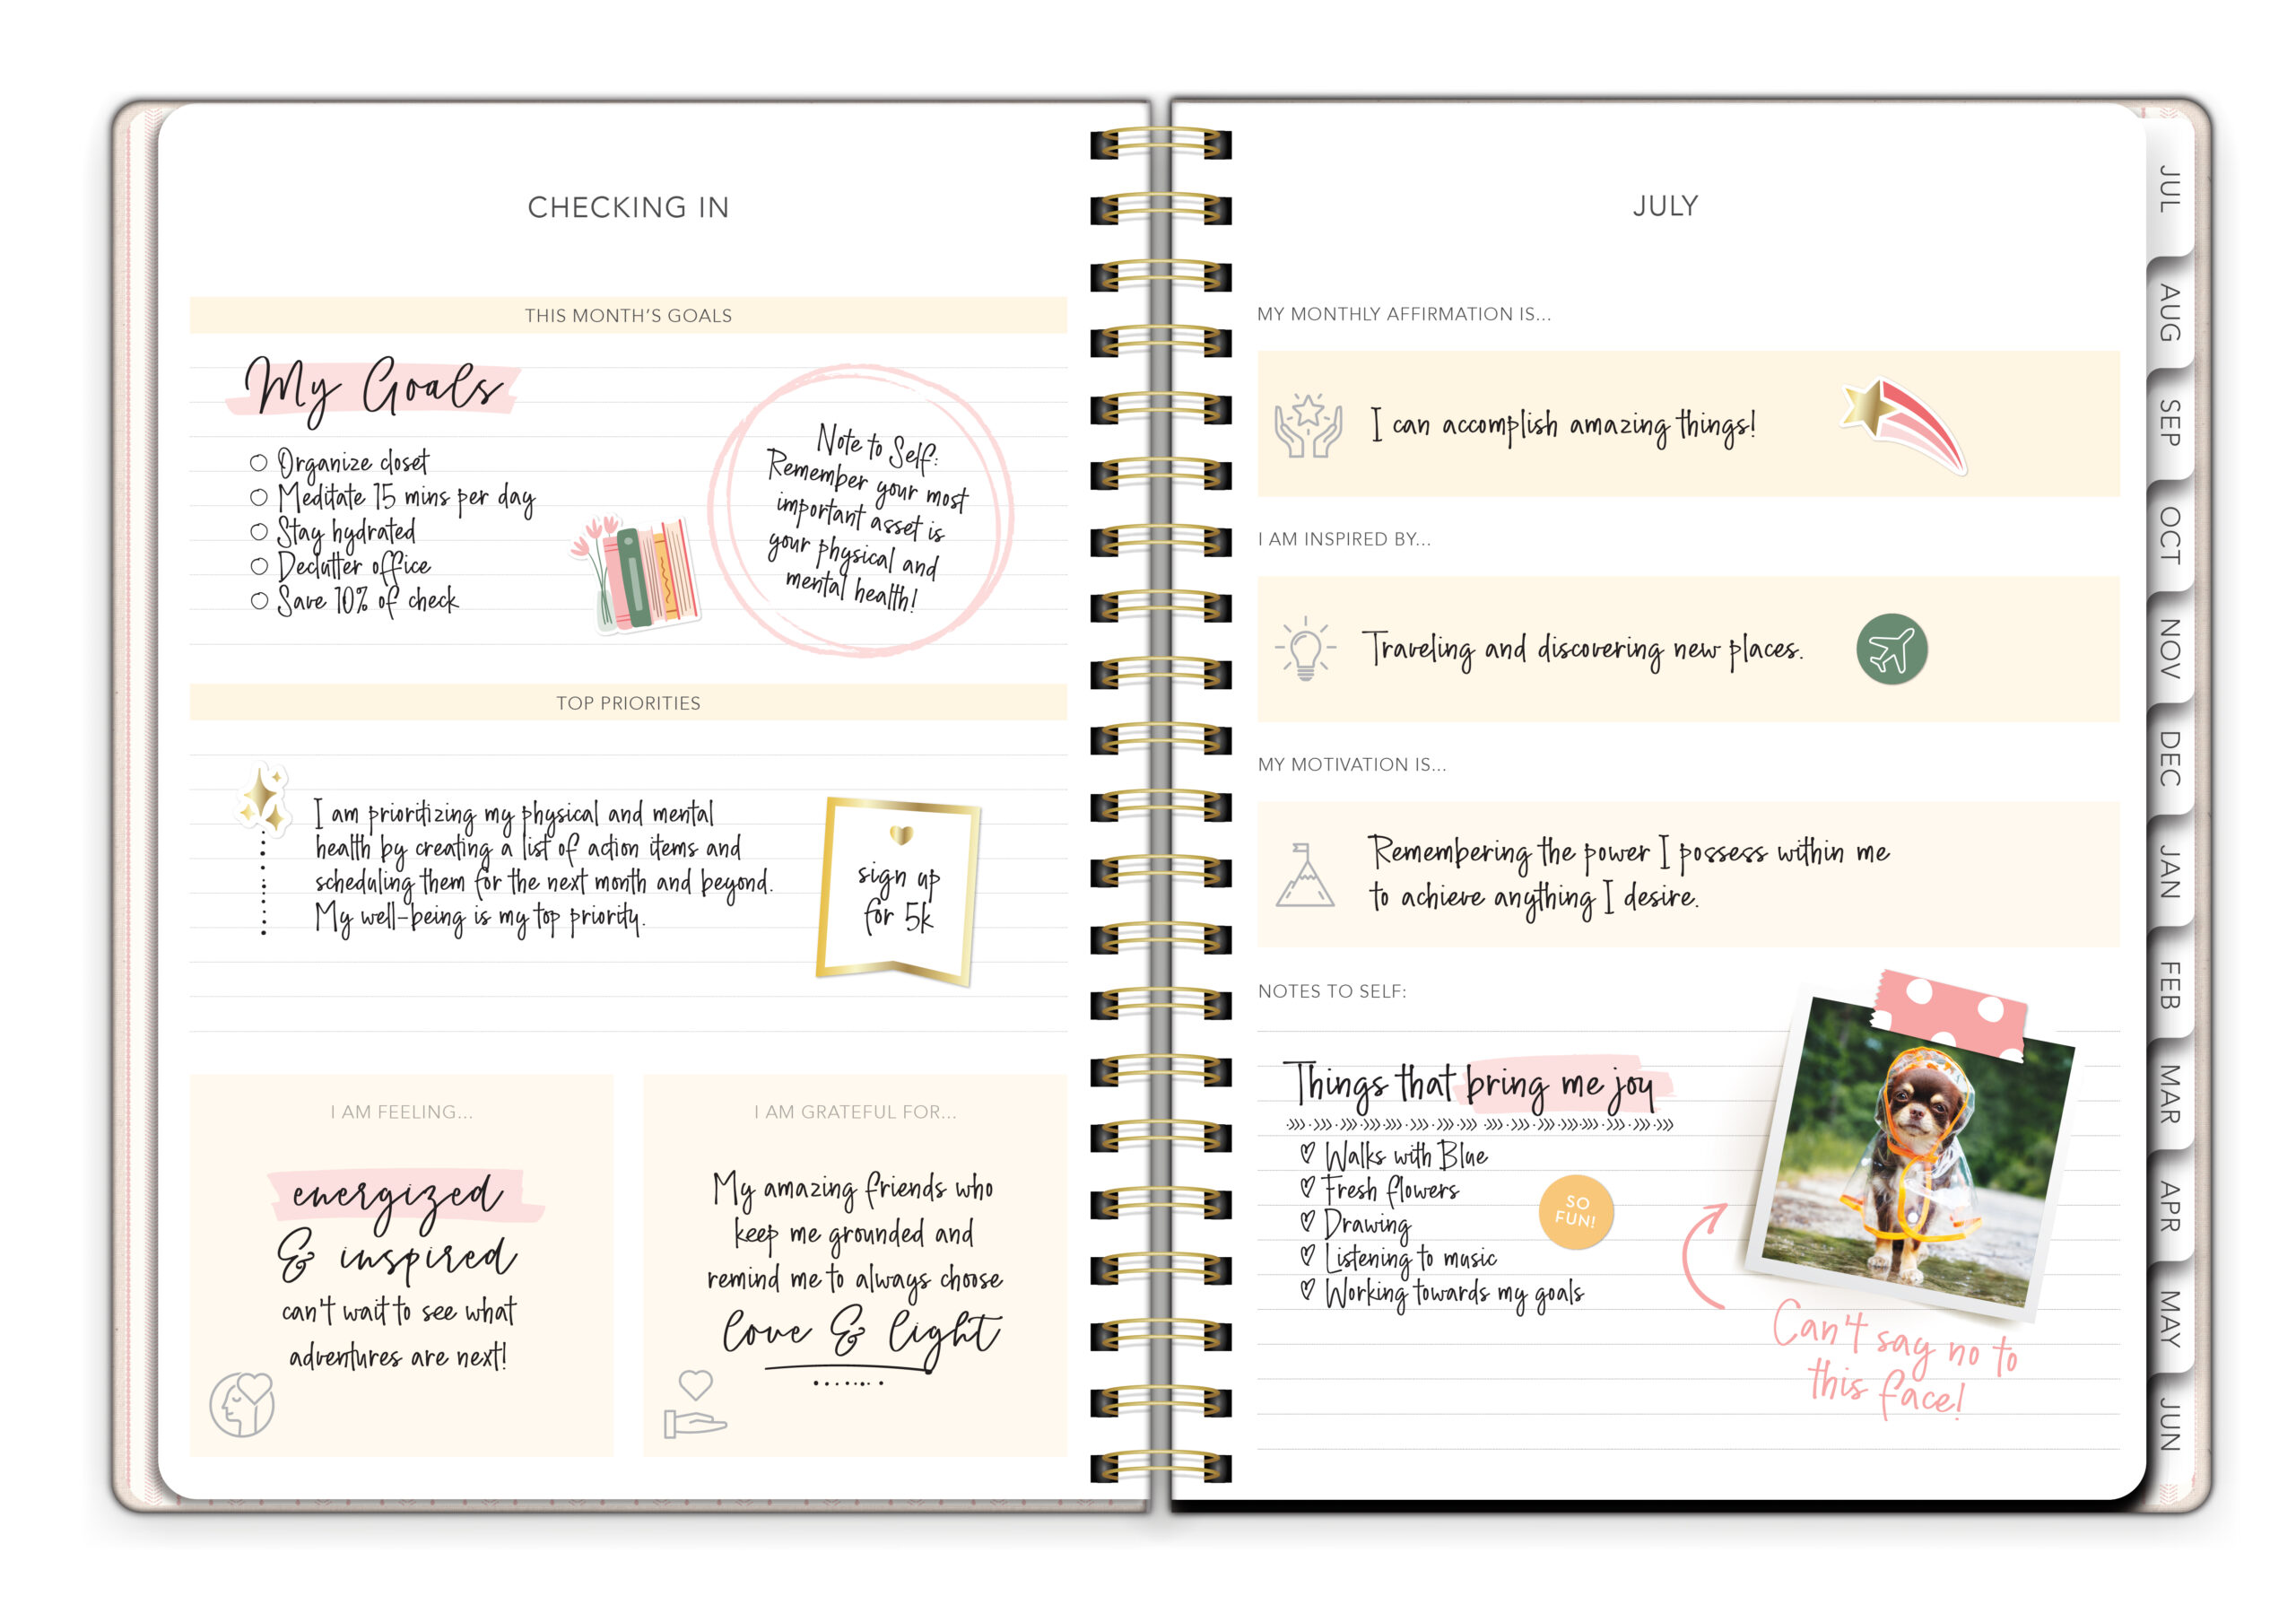 CHECKING IN
THIS MONTH'S GOALS
My Goals
Organize closet
Meditate 15 mins per day
Stay hydrated
Declutter office
Save 10% of check
Note to Self:
Remember your most
important asset is
your physical and
mental health!
TOP PRIORITIES
I am prioritizing my physical and mental
health by creating a list of action items and
scheduling them for the next month and beyond.
My well-being is my top priority.
sign up
for 5k
I AM FEELING...
energized
& inspired
can't wait to see what
adventures are next!
I AM GRATEFUL FOR...
My amazing friends who
keep me grounded and
remind me to always choose
love & light
JULY
MY MONTHLY AFFIRMATION IS...
I can accomplish amazing things!
I AM INSPIRED BY...
Traveling and discovering new places.
MY MOTIVATION IS...
Remembering the power I possess within me
to achieve anything I desire.
NOTES TO SELF:
Things that bring me joy
Walks with Blue
Fresh flowers
Drawing
Listening to music
Working towards my goals
SO
FUN!
Can't say no to
this face!
JUL
AUG
SEP
OCT
NOV
DEC
JAN
FEB
MAR
APR
MAY
JUN